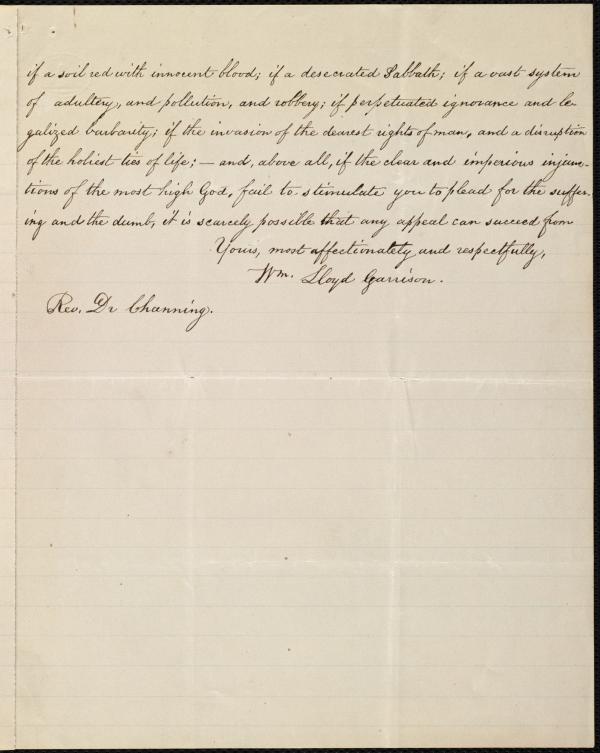 if a soil red with innocent blood; if a desecrated Sabbath; if a vast system
of adultery, and pollution, and robbery; if perpetuated ignorance and le-
galized barbarity; if the invasion of the dearest rights of man, and a disruption
of the holiest ties of life; — and, above all, if the clear and imperious injunc-
tions of the most high God, fail to stimulate you to plead for the suffer-
ing and the dumb, it is scarcely possible that any appeal can succeed from
Yours, most affectionately and respectfully,
Wm. Lloyd Garrison.
Rev. Dr Channing.